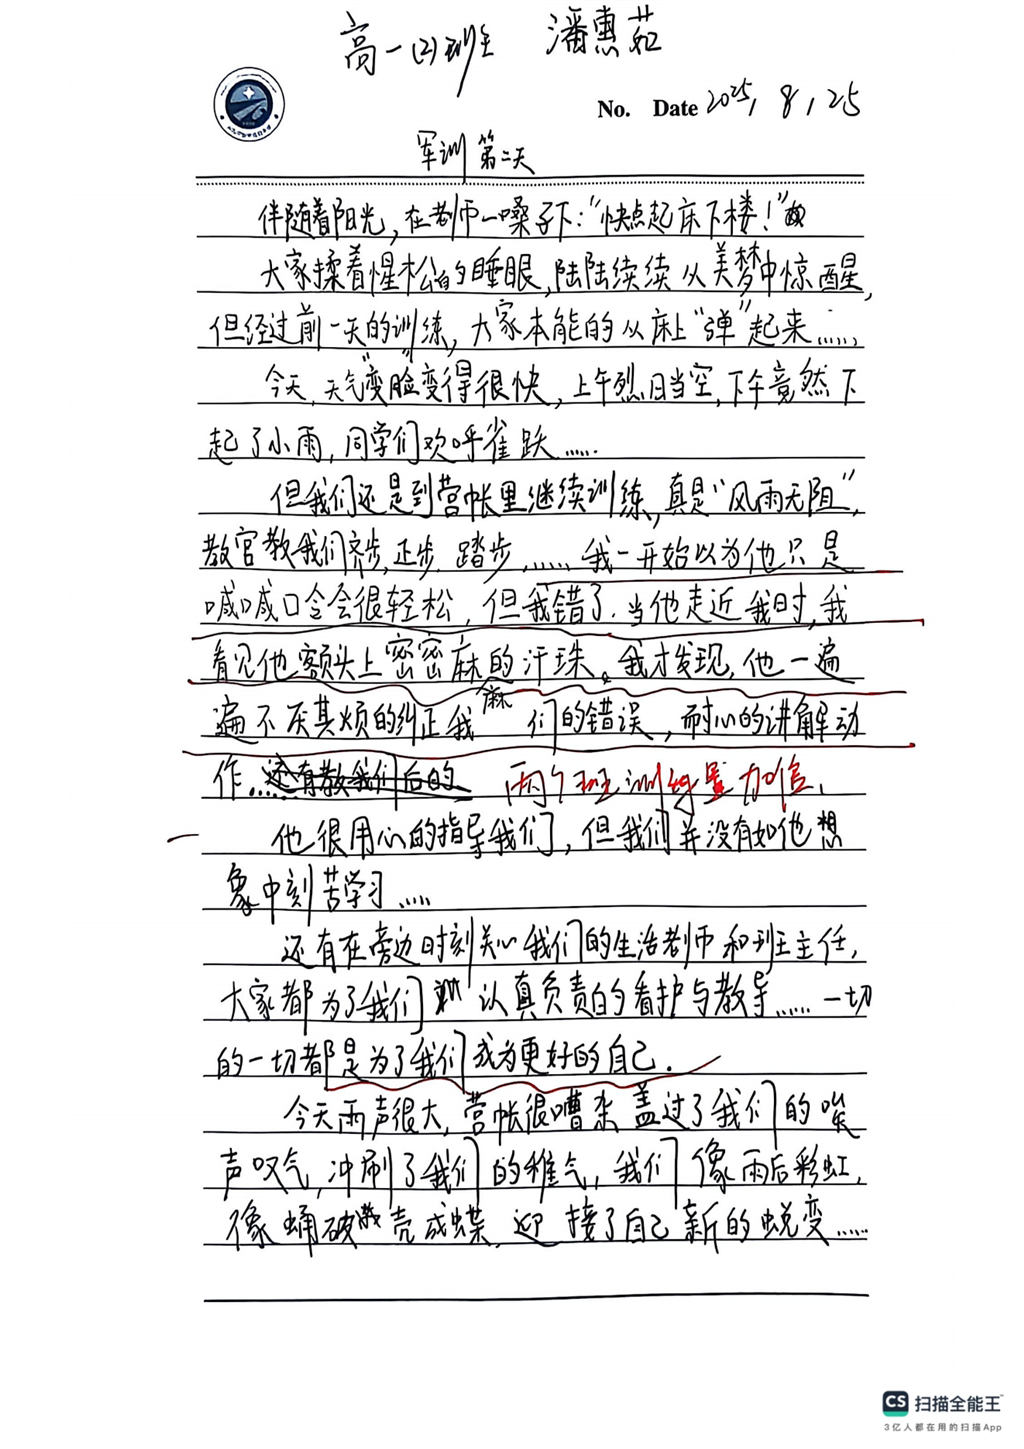 高一(2)班 潘惠茹
No. Date 2025, 8, 25
军训第二天
伴随着阳光,在老师一嗓子下:“快点起床下楼!”
大家揉着惺松的睡眼,陆陆续续从美梦中惊醒,
但经过前一天的训练,大家本能的从床上“弹”起来……
今天,天气“变脸”变得很快,上午烈日当空,下午竟然下
起了小雨,同学们欢呼雀跃……
但我们还是到营帐里继续训练,真是“风雨无阻”,
教官教我们齐步,正步,踏步,……我一开始以为他只是
喊喊口令会很轻松,但我错了.当他走近我时,我
看见他额头上密密麻麻的汗珠。我才发现,他一遍
遍不厌其烦的纠正我们的错误,耐心的讲解动
作……还有教我们后的 两个班训练量加倍.
他很用心的指导我们,但我们并没有如他想
象中刻苦学习……
还有在旁边时刻关心我们的生活老师和班主任,
大家都为了我们 认真负责的看护与教导……一切
的一切都是为了我们成为更好的自己.
今天雨声很大,营帐很嘈杂盖过了我们的唉
声叹气,冲刷了我们的稚气,我们像雨后彩虹,
像蛹破壳成蝶,迎接了自己新的蜕变……
CS 扫描全能王
3亿人都在用的扫描App